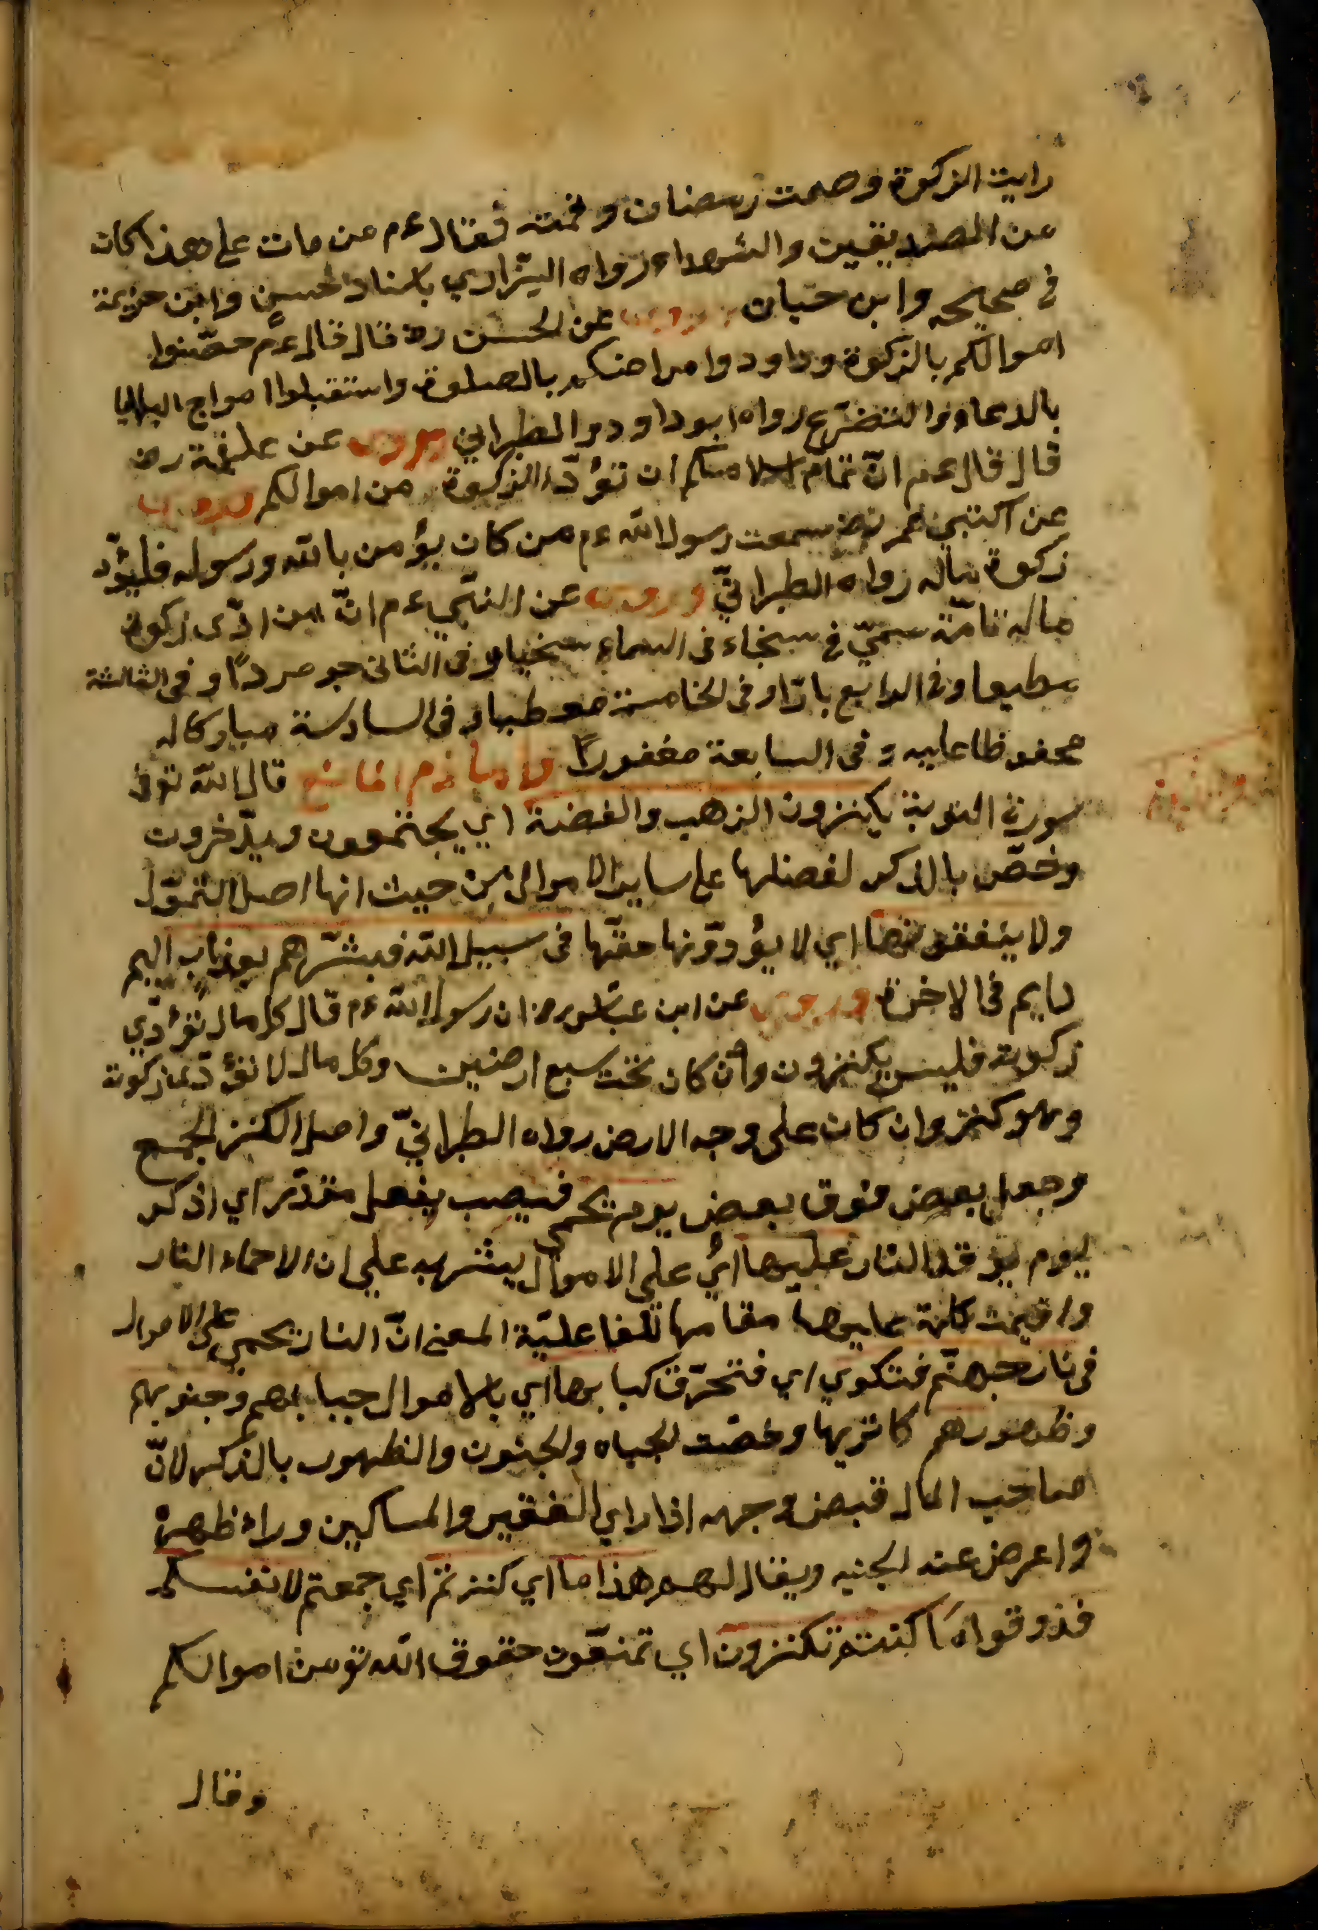 رايت الزكوة وصمت رمضان وقمته فقال ءم من مات على هذا كان
من الصديقين والشهداء رواه البزاري باسناد الحسن وابن حزيمة
فى صحيحه وابن حبان وروى عن الحسن رض قال قال ءم حصّنوا
اموالكم بالزكوة وداودوا مراضكم بالصلوة واستقبلوا امواج البلايا
بالدعاء والتضرّع رواه ابو داود والطبراني وروى عن علقمة رض
قال قال ءم انّ تمام اسلامكم ان تؤدّا الزكوة من اموالكم وروى
عن عمر رض سمعت رسول الله ءم من كان يؤمن بالله ورسوله فليؤدّ
زكوة ماله رواه الطبرانيّ وروى عن النبي ءم انّ من ادّى زكوة
ماله تامّة سمّي فى السماء سخيا وفى الثانى جو مردًا وفى الثالثة
مطيعا وفى الرابع بارّا وفى الخامسة معطيا وفى السادسة مباركا له
محفوظا عليه وفى السابعة مغفورًا واما ذم المانع قال الله تعالى
سورة التوبة يكنزون الذهب والفضة اي يجتمعون ويدّخرون
وخصّ بالذكر لفضلها على ساير الاموال من حيث انها اصل التموّل
ولا ينفقونها اي لا يؤدّونها حقّها فى سبيل الله فبشّرهم بعذاب اليم
دايم فى الاخرة وروى عن ابن عباس رض ان رسول الله ءم قال كل مال تؤدّي
زكوته فليس يكنزون وان كان تحت سبع ارضين وكل مال لا تؤدّى زكوته
وهو كنز وان كان على وجه الارض رواه الطبرانيّ واصل الكنز الجمع
وجعل بعض فوق بعض يوم يحمى فنصب بفعل مقدّر اي اذكر
ليوم يوقد النار عليها اي على الاموال ينشر به على ان الاحماء النار
واقيمت كلمة عليها مقامها للفاعليّة المعنى انّ النار يحمي على الاموال
فى نار جهنّم فتكوي اي فتحرّق كيا بها اي بالاموال جباههم وجنوبهم
وظهورهم كانزيها وخصّت الجباه والجنون والظهور بالذكر لانّ
صاحب المال قبض وجهه اذا راي الفقير والمساكين وراء ظهره
واعرض عند الجنبه ويقال لهم هذا ما اي كنزتم اي جمعتم لانفسكم
فذوقوا ما كنتم تكنزون اي تمنعون حقوق الله تع من اموالكم
وقال